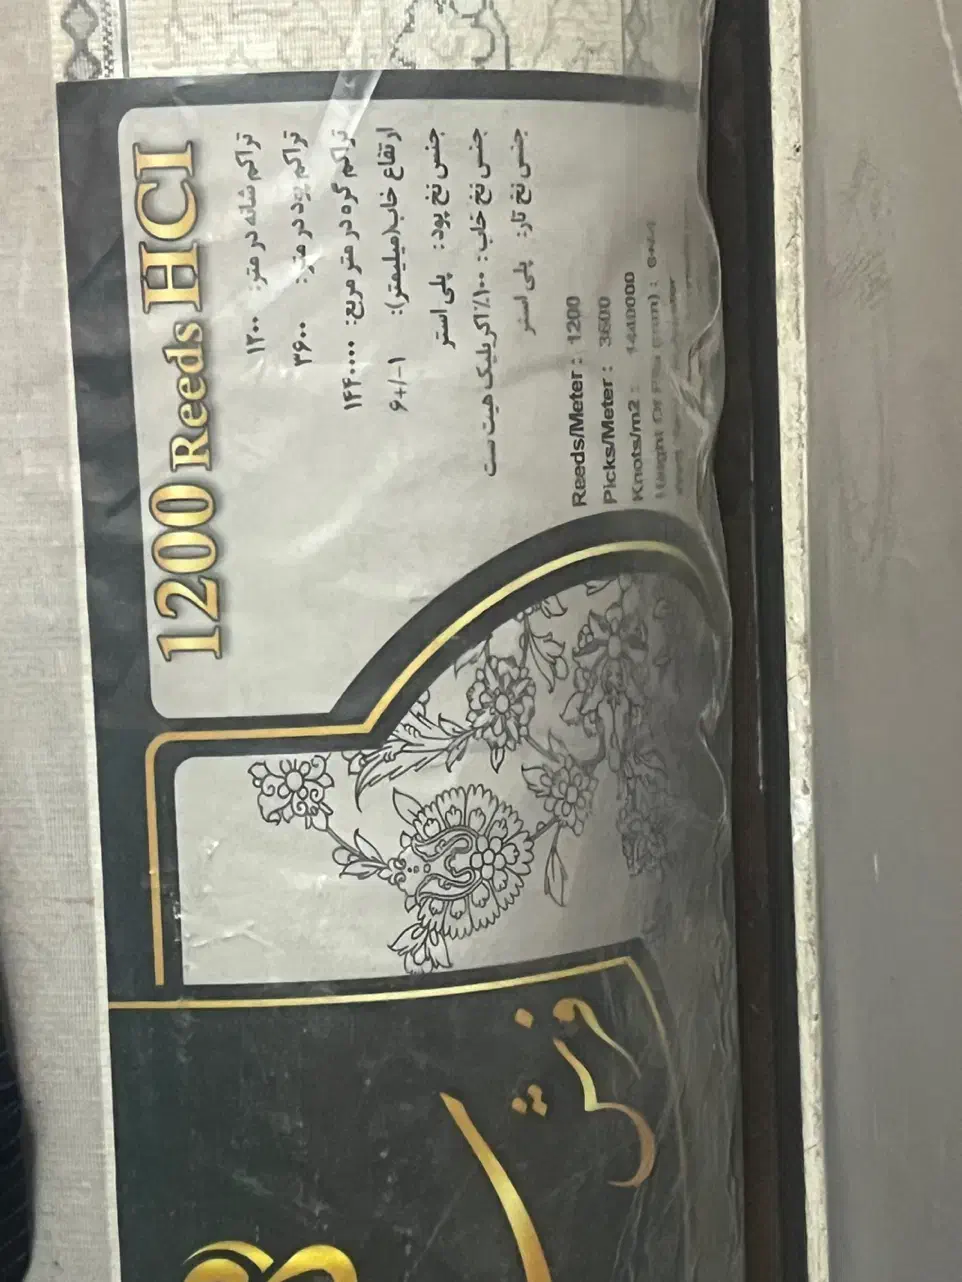 1200 Reeds HCI
تراکم شانه در متر: ۱۲۰۰
تراکم پود در متر: ۳۶۰۰
تراکم گره در متر مربع: ۱۴۴۰۰۰۰
ارتفاع خاب(میلیمتر): ۶+/-۱
جنس نخ پود: پلی استر
جنس نخ خاب: ۱۰۰٪ اکریلیک هیت ست
جنس نخ تار: پلی استر
Reeds/Meter : 1200
Picks/Meter : 3600
Knots/m2 : 1440000
Height Of (mm) :